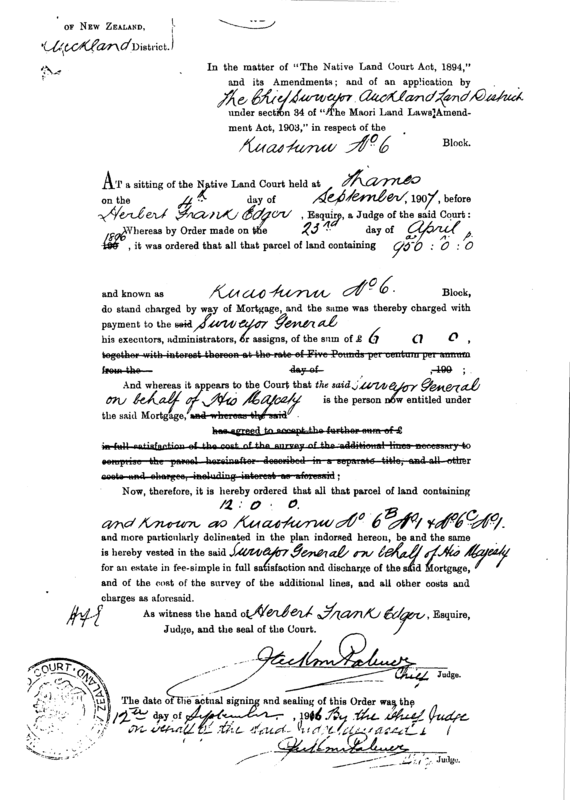 OF NEW ZEALAND,
Auckland District.
In the matter of "The Native Land Court Act, 1894,"
and its Amendments; and of an application by
The Chief Surveyor Auckland Land District
under section 34 of "The Maori Land Laws Amend-
ment Act, 1903," in respect of the
Kuaotunu No 6 Block.
AT a sitting of the Native Land Court held at Thames
on the 4th day of September, 1907, before
Herbert Frank Edger, Esquire, a Judge of the said Court:
Whereas by Order made on the 23rd day of April
1896, it was ordered that all that parcel of land containing
a. r. p.
950 : 0 : 0
and known as Kuaotunu No 6. Block,
do stand charged by way of Mortgage, and the same was thereby charged with
payment to the said Surveyor General
his executors, administrators, or assigns, of the sum of £ 6 0 0,
together with interest thereon at the rate of Five Pounds per centum per annum
from the day of , 190 ;
And whereas it appears to the Court that the said Surveyor General
on behalf of His Majesty is the person now entitled under
the said Mortgage, and whereas the said
has agreed to accept the further sum of £
in full satisfaction of the cost of the survey of the additional lines necessary to
comprise the parcel hereinafter described in a separate title, and all other
costs and charges, including interest as aforesaid;
Now, therefore, it is hereby ordered that all that parcel of land containing
12 : 0 0.
and known as Kuaotunu No 6B No1 & No6C No1.
and more particularly delineated in the plan indorsed hereon, be and the same
is hereby vested in the said Surveyor General on behalf of His Majesty
for an estate in fee-simple in full satisfaction and discharge of the said Mortgage,
and of the cost of the survey of the additional lines, and all other costs and
charges as aforesaid.
As witness the hand of Herbert Frank Edger, Esquire,
Judge, and the seal of the Court.
Jackson Palmer
Chief Judge.
COURT · ZEALAND
The date of the actual signing and sealing of this Order was the
12th day of September, 1916 By the Chief Judge
on behalf of the said Judge deceased
Jackson Palmer
Chief Judge.